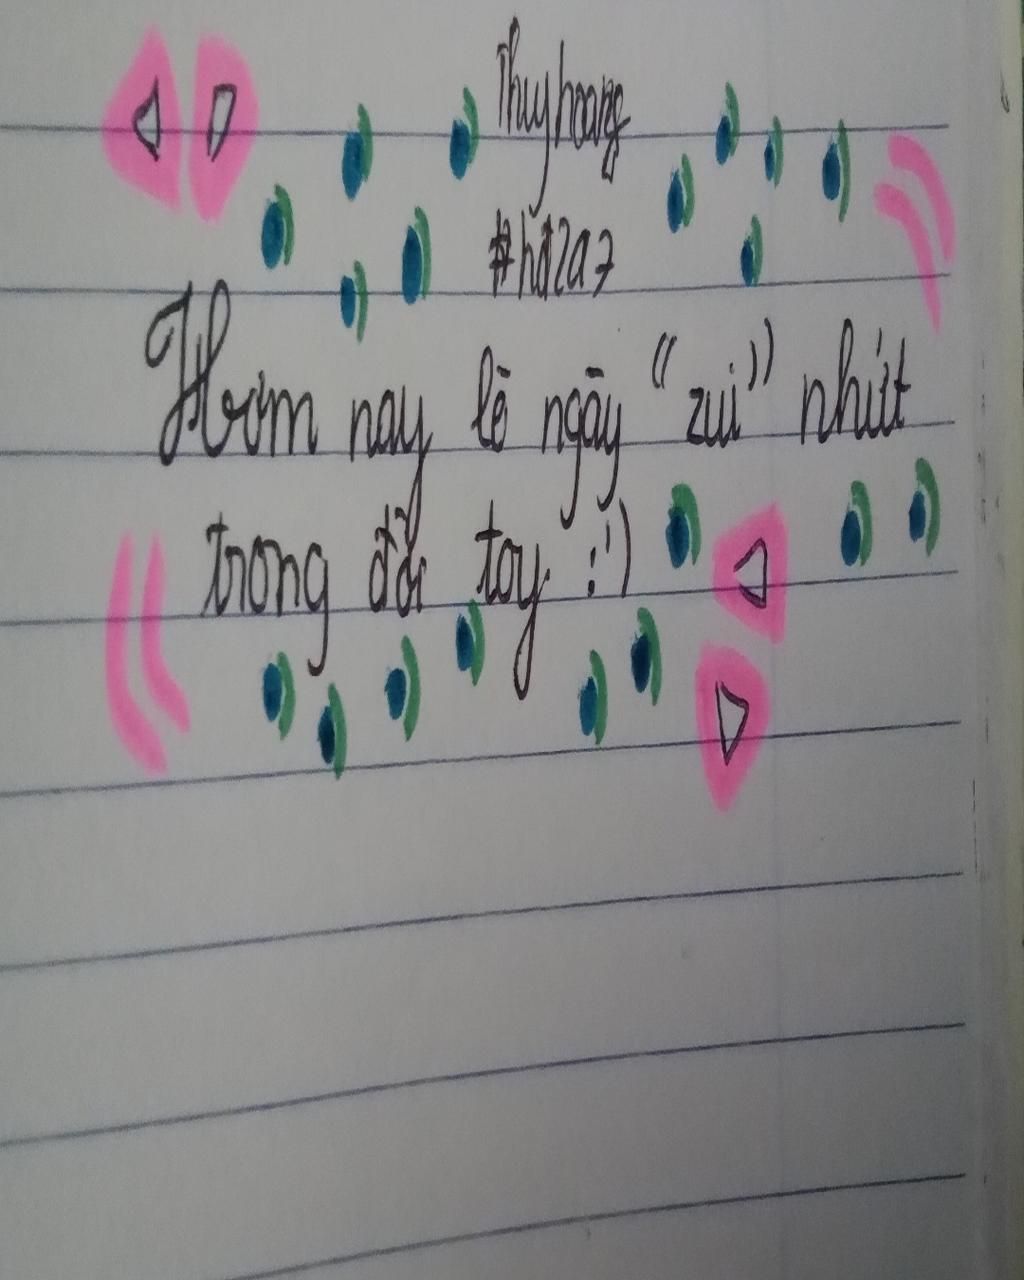 Thuyhoang
#hđ2a7
Hơm nay lè ngày “zui” nhứt
trong đời toy :')